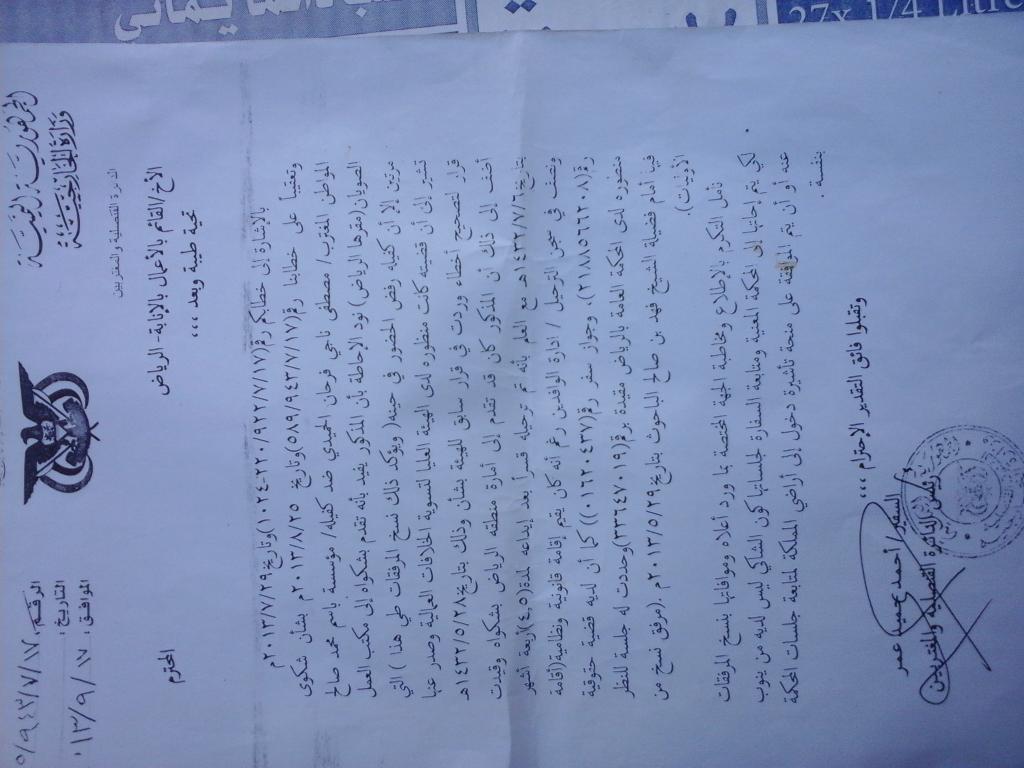 الجمهورية اليمنية
وزارة الخارجية
الدائرة القنصلية والمغتربين
الرقم:
التاريخ:
الموافق:
الأخ/القائم بالأعمال بالإنابة- الرياض المحترم
تحية طيبة وبعد ،،،
بالإشارة إلى خطابكم رقم
وتعقيباً على خطابنا رقم بشأن شكوى
المواطن المغترب/ مصطفى ناجي فرحان الحميدي ضد كفيله/ مؤسسة باسم محمد صالح
الصويان(مقرها الرياض)نود الإحاطة بأن المذكور يفيد بأنه تقدم بشكواه إلى مكتب العمل
مرتين إلا أن كفيله رفض الحضور في حينه( ويؤكد ذلك نسخ المرفقات طي هذا ) التي
تشير إلى أن قضيته كانت منظوره لدى الهيئة العليا لتسوية الخلافات العمالية وصدر عنها
قرار لتصحيح أخطاء وردت في قرار سابق للهيئة بشأن وذلك بتاريخ١٤٣٢/٥/٢٨هـ
أضف إلى ذلك أن المذكور كان قد تقدم إلى أمارة منطقة الرياض بشكواه وقيدت
بتاريخ١٤٣٢/٧/٦هـ مع العلم بأنه تم ترحيله قسراً بعد إيداعه لمدة(٤.٥)أربعة أشهر
ونصف في سجن الترحيل / ادارة الوافدين رغم أنه كان يقيم إقامة قانونية ونظامية(أقامة
رقم(٢١٨٨٥٦٦٢٠٨)، وجواز سفر رقم(٠١٦٢٠٤٣٧)) كما أن لديه قضية حقوقية
منظوره لدى المحكمة العامة بالرياض مقيدة برقم(٣٣٦٤٧٠١٩)وحددت له جلسة للنظر
فيها أمام فضيلة الشيخ فهد بن صالح الباحوث بتاريخ٢٠١٣/٥/٢٩م ،(مرفق نسخ من
الأوليات).
نأمل التكرم بالإطلاع ومخاطبة الجهة المختصة بما ورد أعلاه وموافاتها بنسخ المرفقات
لكي يتم إحالتها إلى المحكمة المعنية ومتابعة السفارة جلساتها كون الشاكي ليس لديه من ينوب
عنه أو أن يتم الموافقة على منحة تأشيرة دخول إلى أراضي المملكة لمتابعة جلسات المحكمة
بنفسة.
وتقبلوا فائق التقدير الإحترام ،،،
السفير/ أحمد حميد عمر
رئيس الدائرة القنصلية والمغتربين
27x 1/4 Litre